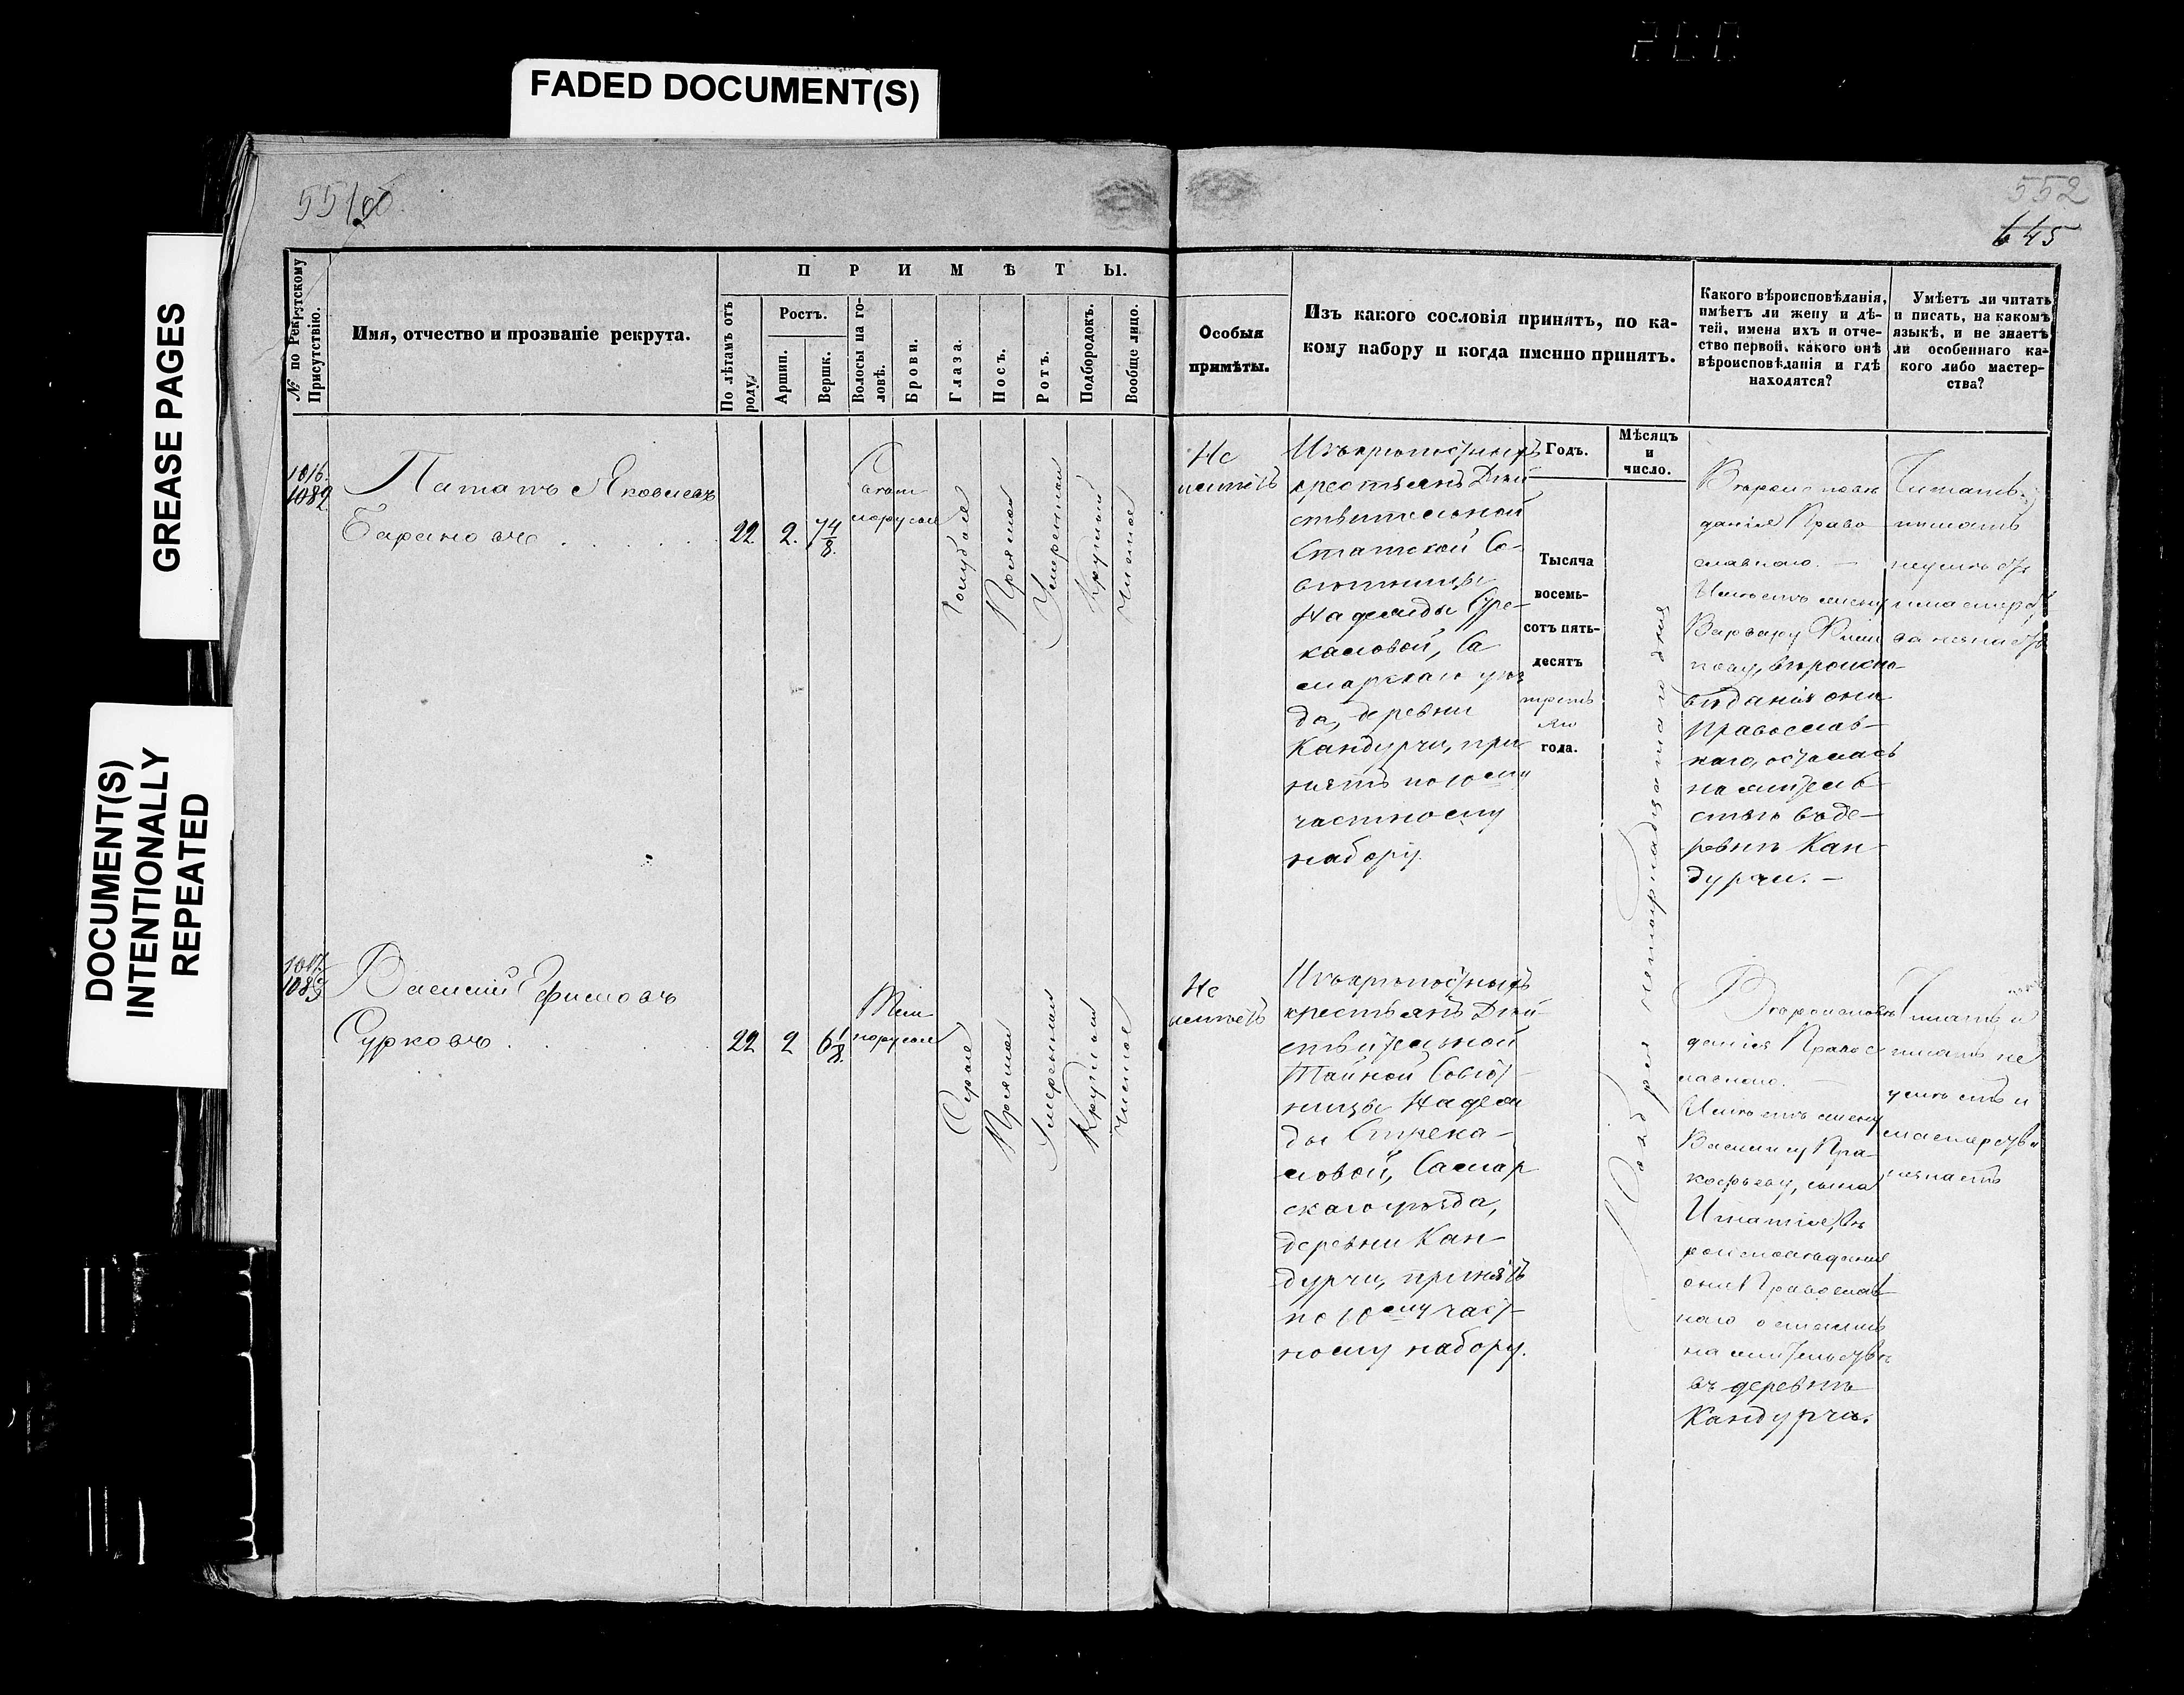 FADED DOCUMENT(S)
GREASE PAGES
DOCUMENT(S)
INTENTIONALLY
REPEATED
552
645
№ по Рекрутскому
Присутствію.
Имя, отчество и прозваніе рекрута.
ПРИМѢТЫ.
По лѣтамъ отъ
роду.
Ростъ.
Аршин.
Вершк.
Волосы на го-
ловѣ.
Брови.
Глаза.
Носъ.
Ротъ.
Подбородокъ.
Вообще лицо.
Особыя
примѣты.
Изъ какого сословія принятъ, по ка-
кому набору и когда именно принятъ.
Какого вѣроисповѣданія,
имѣетъ ли жену и дѣ-
тей, имена ихъ и отче-
ство первой, какого онѣ
вѣроисповѣданія и гдѣ
находятся?
Умѣетъ ли читать
и писать, на какомъ
языкѣ, и не знаетъ
ли особеннаго ка-
кого либо мастер-
ства?
Годъ.
Мѣсяцъ
и
число.
1016.
1082
Патапъ Яковлевъ
Бариновъ
22
2.
7 4/8.
Свѣт-
лорусые
Голубые
Прямой
Умеренный
Круглый
Чистое
Не
имѣетъ
Изъ крѣпостныхъ
крестьянъ Дѣй-
ствительной
Статской Со-
вѣтницы
Надежды Стре-
каловой, Са
марскаго уѣз
да, деревни
Кандурчи, при
нятъ по 10му
частному
набору.
Тысяча
восемь-
сотъ пять-
десятъ
третья
го
года.
Ноября пятнадцатаго дня
Вѣроисповѣ
данія Право
славнаго. —
Имѣетъ жену
Варвару
вѣроиспо-
вѣданія она
Православ-
наго, осталась
на житель-
ствѣ въ де-
ревнѣ Кан-
дурчи. —
Читать,
писать
неумѣетъ
и мастерст
ва незнаетъ
1017.
1083
Василій Ефимовъ
Сурковъ
22
2
6 1/8.
Тем-
норусые
Серые
Прямой
Умеренный
Круглый
Чистое
Не
имѣетъ
Изъ крѣпостныхъ
крестьянъ Дѣй-
ствительной
Тайной Совѣт-
ницы Надеж
ды Стрека-
ловой, Самар
скаго уѣзда,
деревни Кан-
дурчи, принятъ
по 10му част-
ному набору.
Вѣроисповѣ
данія Правос
лавнаго.
Имѣетъ жену
Василису Про-
кофьеву, сына
Игнатія, вѣ
роисповѣданія
они Православ-
наго остались
на жительствѣ
въ деревнѣ
Кандурча.
Читать и
писать не
умѣетъ и
мастерства
незнаетъ